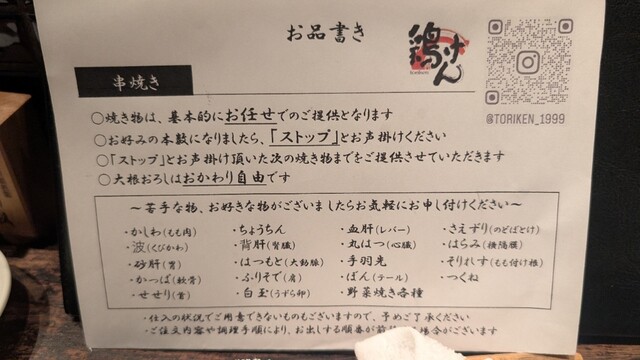 お品書き
鶏けん
@TORIKEN_1999
串焼き
○焼き物は、基本的にお任せでのご提供となります
○お好みの本数になりましたら、「ストップ」とお声掛けください
○「ストップ」とお声掛け頂いた次の焼き物までをご提供させていただきます
○大根おろしはおかわり自由です
～苦手な物、お好きな物がございましたらお気軽にお申し付けください～
・かしわ(もも肉) ・ちょうちん ・血肝(レバー) ・さえずり(のどぼとけ)
・波(くびかわ) ・背肝(腎臓) ・丸はつ(心臓) ・はらみ(横隔膜)
・砂肝(胃) ・はつもと(大動脈) ・手羽先 ・そりれす(もも付け根)
・かっぱ(軟骨) ・ふりそで(肩) ・ぼん(テール) ・つくね
・せせり(首) ・白玉(うずら卵) ・野菜焼き各種
・仕入の状況でご用意できないものもございますので、予めご了承ください
・ご注文内容や調理手順により、お出しする順番が 場合がございます